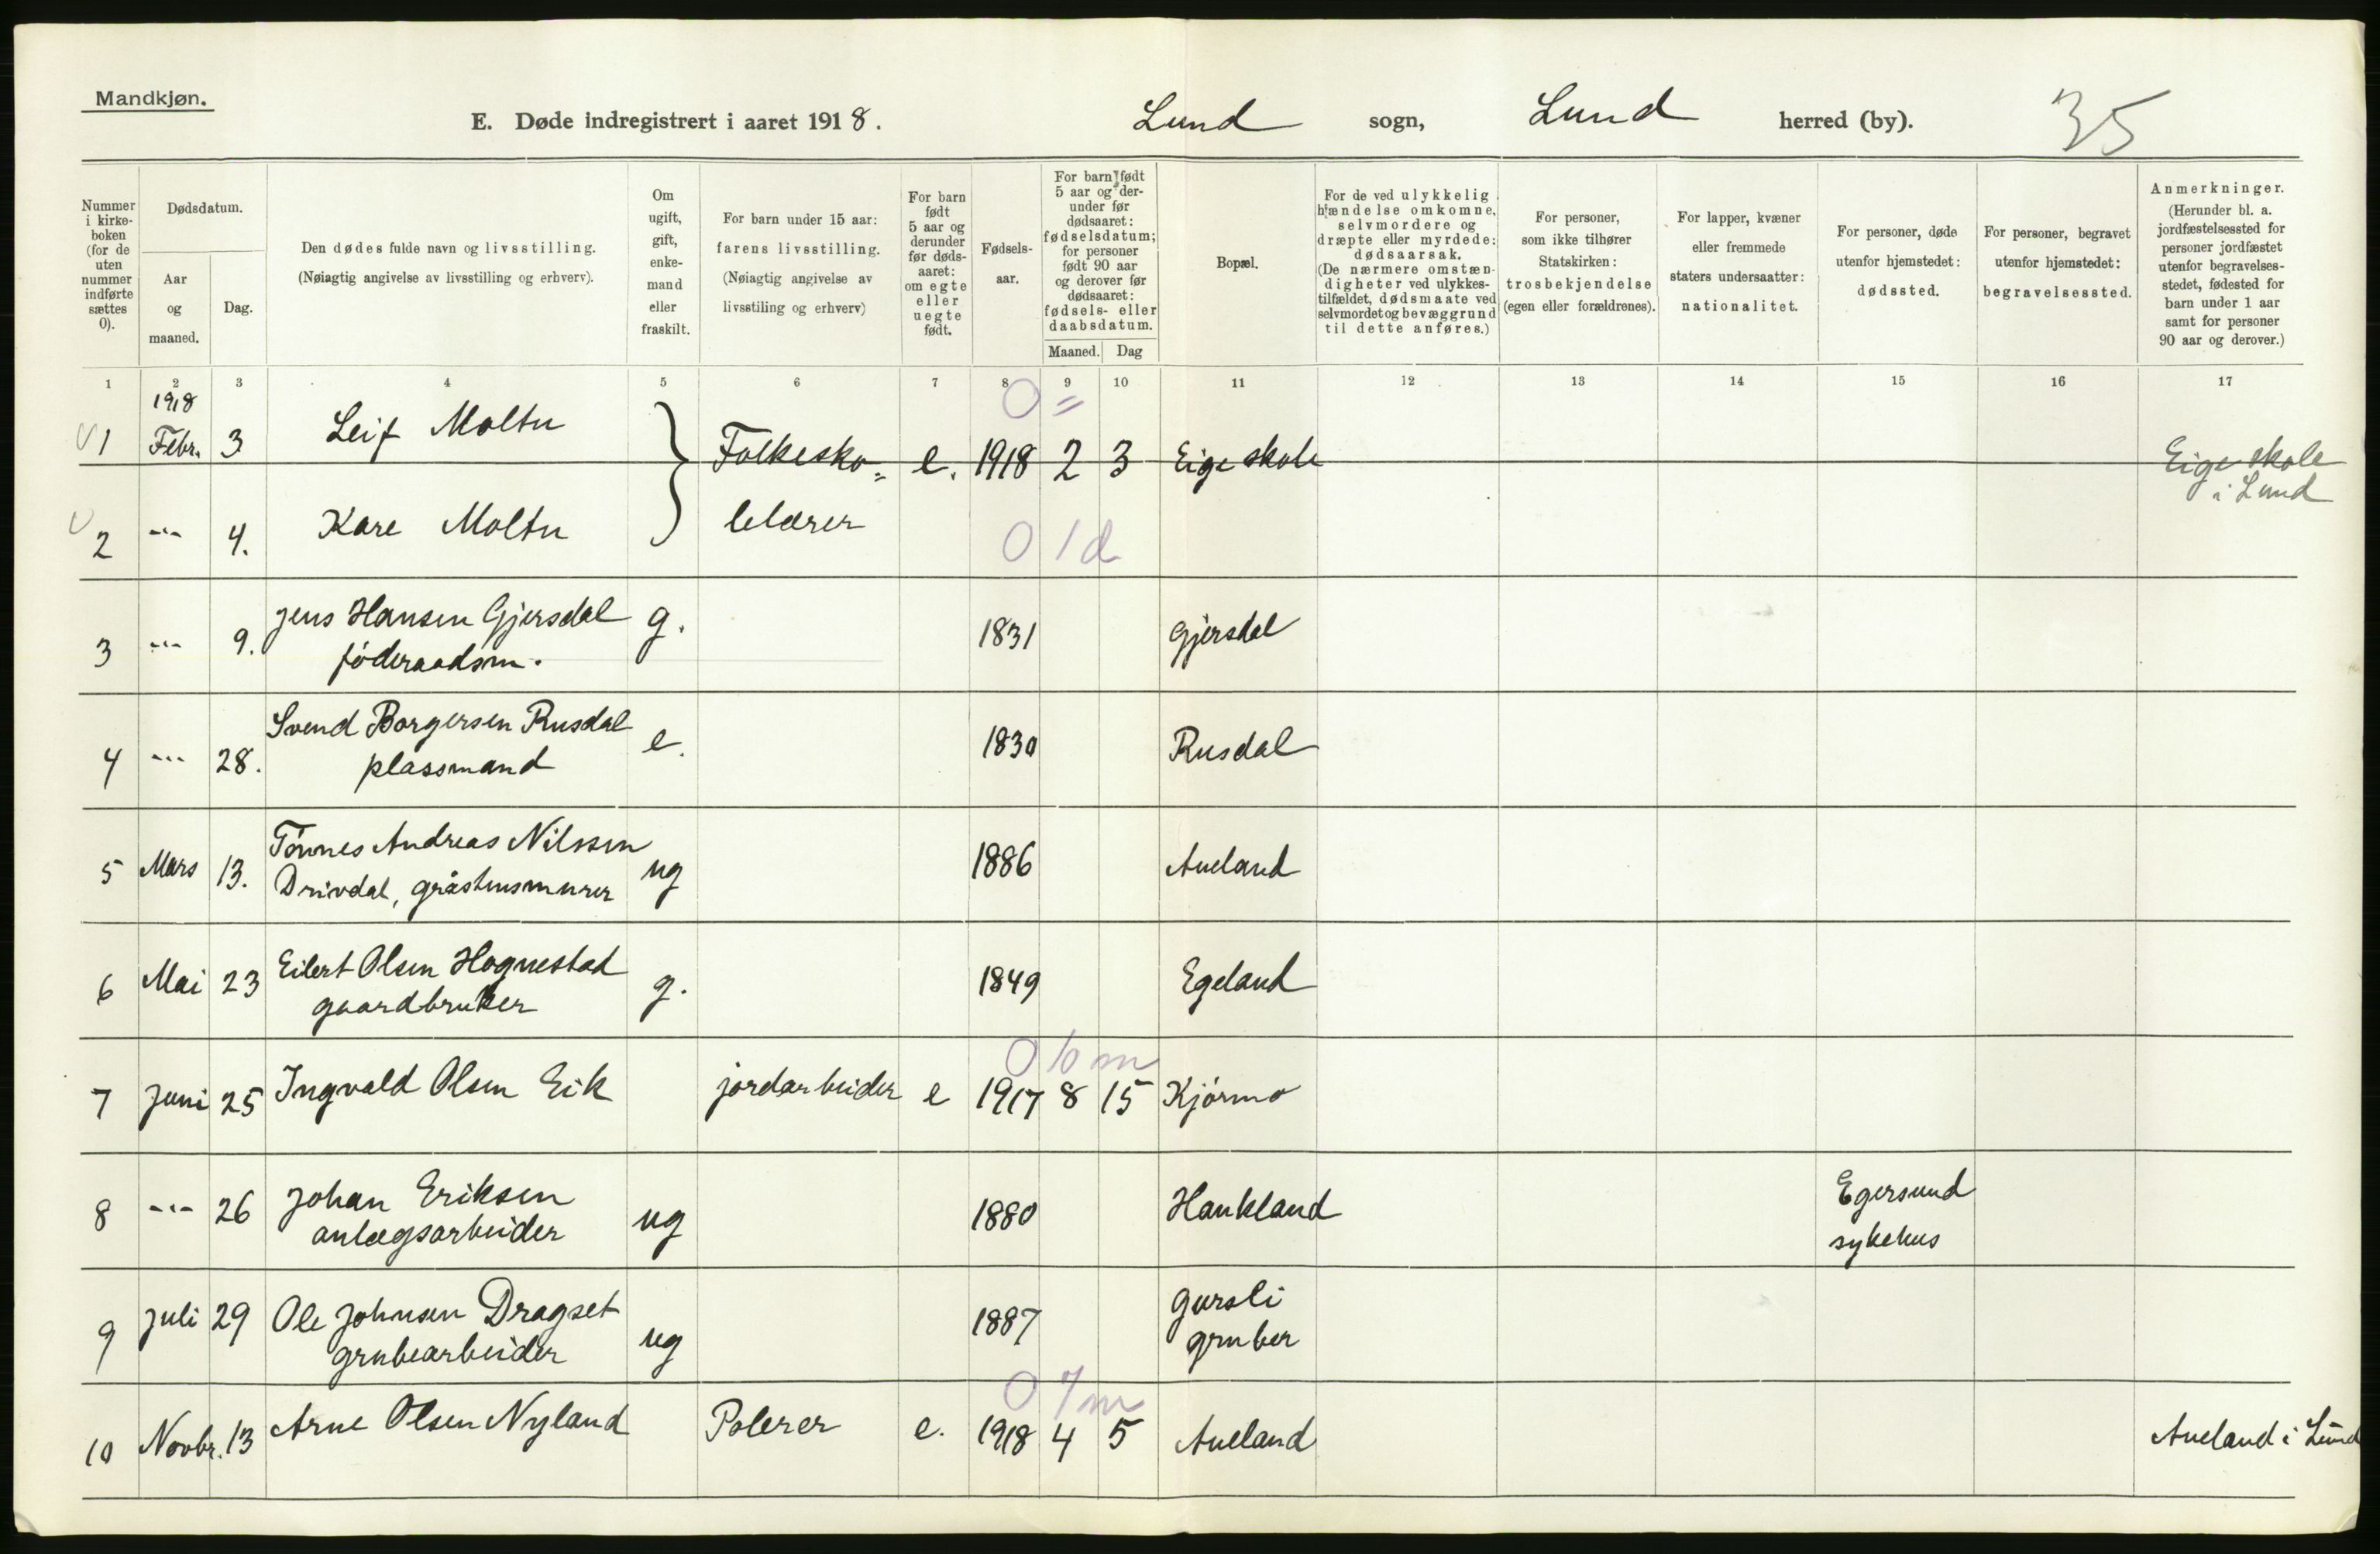 Mandkjøn.
E. Døde indregistrert i aaret 1918.
Lund sogn, Lund herred (by).
35
Nummer i kirke- boken (for de uten nummer indførte sættes 0).
Dødsdatum.
Aar og maaned.
Dag.
Den dødes fulde navn og livsstilling.
(Nøiagtig angivelse av livsstilling og erhverv).
Om ugift, gift, enke- mand eller fraskilt.
For barn under 15 aar: farens livsstilling. (Nøiagtig angivelse av livsstiling og erhverv)
For barn født 5 aar og derunder før døds- aaret: om egte eller uegte født.
Fødsels- aar.
For barn født 5 aar og der- under før dødsaaret: fødselsdatum; for personer født 90 aar og derover før dødsaaret: fødsels- eller daabsdatum.
Maaned. Dag
Bopæl.
For de ved ulykkelig hændelse omkomne, selvmordere og dræpte eller myrdede: dødsaarsak. (De nærmere omstæn- digheter ved ulykkes- tilfældet, dødsmaate ved selvmordet og bevæggrund til dette anføres.)
For personer, som ikke tilhører Statskirken: trosbekjendelse (egen eller forældrenes).
For lapper, kvæner eller fremmede staters undersaatter: nationalitet.
For personer, døde utenfor hjemstedet: dødssted.
For personer, begravet utenfor hjemstedet: begravelsessted.
Anmerkninger. (Herunder bl. a. jordfæstelsessted for personer jordfæstet utenfor begravelses- stedet, fødested for barn under 1 aar samt for personer 90 aar og derover.)
1 2 3 4 5 6 7 8 9 10 11 12 13 14 15 16 17
1918
0 =
1 Febr. 3 Leif Moltu } Folkesko= e. 1918 2 3 Eige skole Eige skole
i Lund
2 -"- 4. Kare Moltu lelærer
0 1 d
3 -"- 9. Jens Hansen Gjersdal g. 1831 Gjersdal
föderaadsm.
4 -"- 28. Svend Borgersen Rusdal e. 1830 Rusdal
plassmand
5 Mars 13. Tönnes Andreas Nilssen ug 1886 Aueland
Drivdal, gråstensmurer
6 Mai 23 Eilert Olsen Hognestad g. 1849 Egeland
gaardbruker
0 10 m
7 Juni 25 Ingvald Olsen Eik jordarbeider e 1917 8 15 Kjörmo
8 -"- 26 Johan Eriksen ug 1880 Haukland Egersund
anlægsarbeider sykehus
9 Juli 29 Ole Johnsen Dragset ug 1887 Gursli
grubearbeider gruber
0 7 m
10 Novbr. 13 Arne Olsen Nyland Polerer e. 1918 4 5 Aueland Aueland i Lund